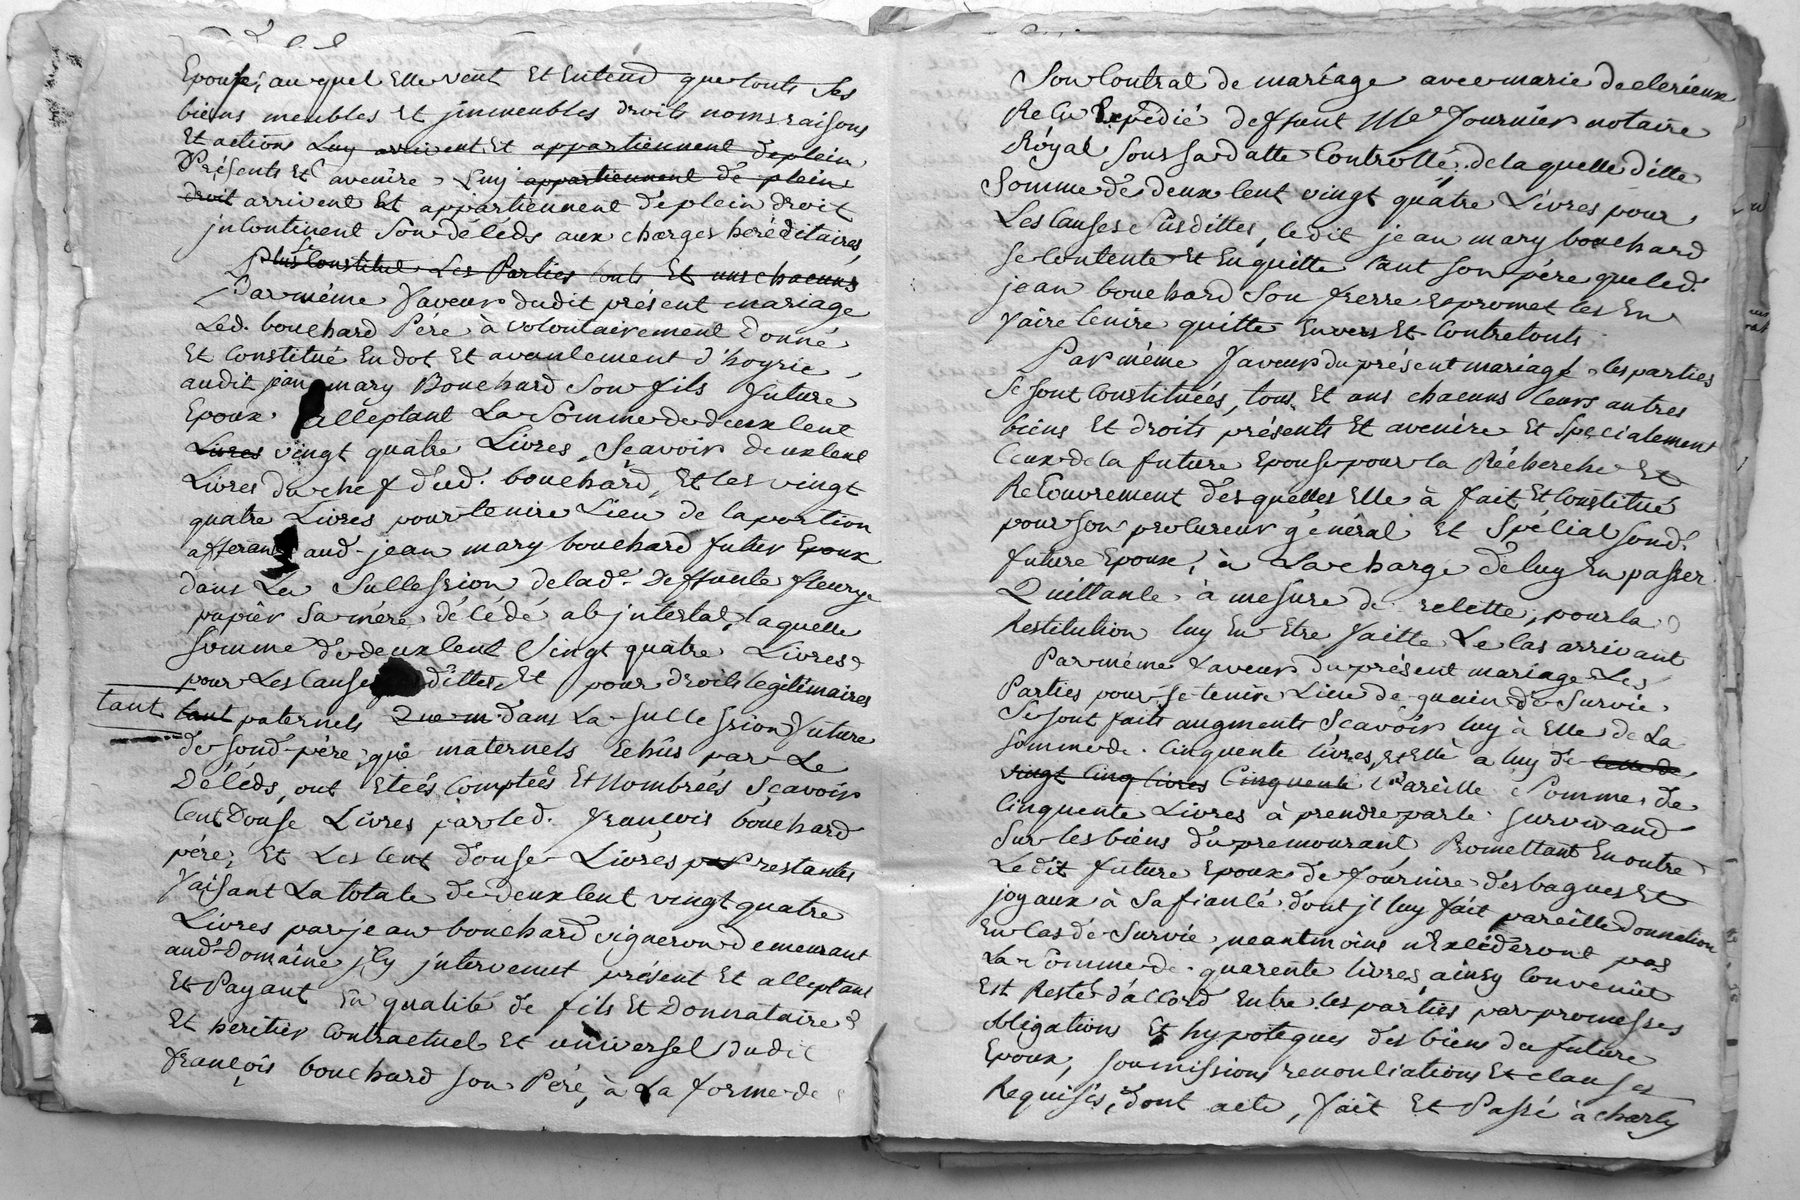 Epouse; auquel Elle veut Et Entend que touts ses
biens meubles Et jmmeubles droits noms raisons
Et actions Luy arrivent Et appartiennent deplein
Présents Et avenire, Luy appartiennent de plein
droit arrivent Et appartiennent déplein droit
jncontinent Son décéds aux charges héréditaires,
Plus Constitué Les Parties touts Et uns chacuns
Par même faveur dudit présent mariage
Led. bouchard Pére à volontairement donné
Et Constitué En dot Et avancement d'hoyrie
audit jean mary Bouchard Son fils future
Epoux acceptant La Somme de deux cent
Livres vingt quatre Livres, Scavoir deux cent
Livres du chef dud. bouchard, Et les vingt
quatre Livres pour tenire Lieu de la portion
afferant aud. jean mary bouchard futur Epoux
dans La Succession de lad.e deffunte fleurye
papier Sa mére décédé abjntestat, laquelle
Somme de deux cent Vingt quatre Livres
pour Les Causes dittes, Et pour droits legitimaires
tant tant paternels Que m dans La Succession future
de sond. pére, que maternels Echûs par Le
Décéds, ont Eteés Comptées Et Nombrées Scavoir
Cent Douse Livres par led. françois bouchard
pére, Et Les Cent douse Livres par restantes
faisant La totale de deux Cent vingt quatre
Livres par jean bouchard vigneron demeurant
aud. Domaine jcy jntervenut présent Et acceptant
Et Payant En qualité de fils Et Donnataire
Et heritier Contractuel Et universel dudit
françois bouchard son Pére, à La forme de
Son Contrat de mariage avec marie declerieux
ReCu Expédié deffunt Me fournier notaire
Róyal Sous sa datte Controllé, de laquelle ditte
Somme de deux Cent vingt quatre Livres pour
Les Causes Susdittes, ledit jean mary bouchard
se Contente Et En quitte tant Son pére que led.
jean bouchard Son frerre Et promet les En
faire tenire quitte Envers Et Contre touts
Par même faveur du présent mariage les parties
Se sont Constituées, tous Et uns chacuns leurs autres
biens Et droits présents Et avenire Et Specialement
Ceux de la future Epouse pour la Récherche Et
ReCouvrement des quelles Elle à fait Et Constitué
pour son procureur général Et Spécial sond.
future Epoux, à La charge de luy En passer
Quittance à mesure de recette, pour la
Restitution luy En Etre faitte Le Cas arrivant
Par même faveur du présent mariage Les
Parties pour se tenire Lieu de guain de Survie,
Se sont faits augments Scavoir luy à Elle de La
Somme de Cinquente livres, et Elle à luy de celle de
vingt Cinq livres Cinquente Pareille Somme de
Cinquente Livres à prendre par le survivand
Sur les biens du premourant, Promettant En outre
Ledit future Epoux de fournire des bagues Et
joyaux à Sa fiancé dont jl luy fait pareille Donnation
En Cas de Survie, neantmoins n'Excéderont pas
La Somme de quarente livres, ainsy Convenüt
Est Resté d'accord Entre les parties par promesses
obligations Et hypoteques des biens du future
Epoux, soumissions renonciations Et clauses
Requises, Dont acte, fait Et Passé à charly